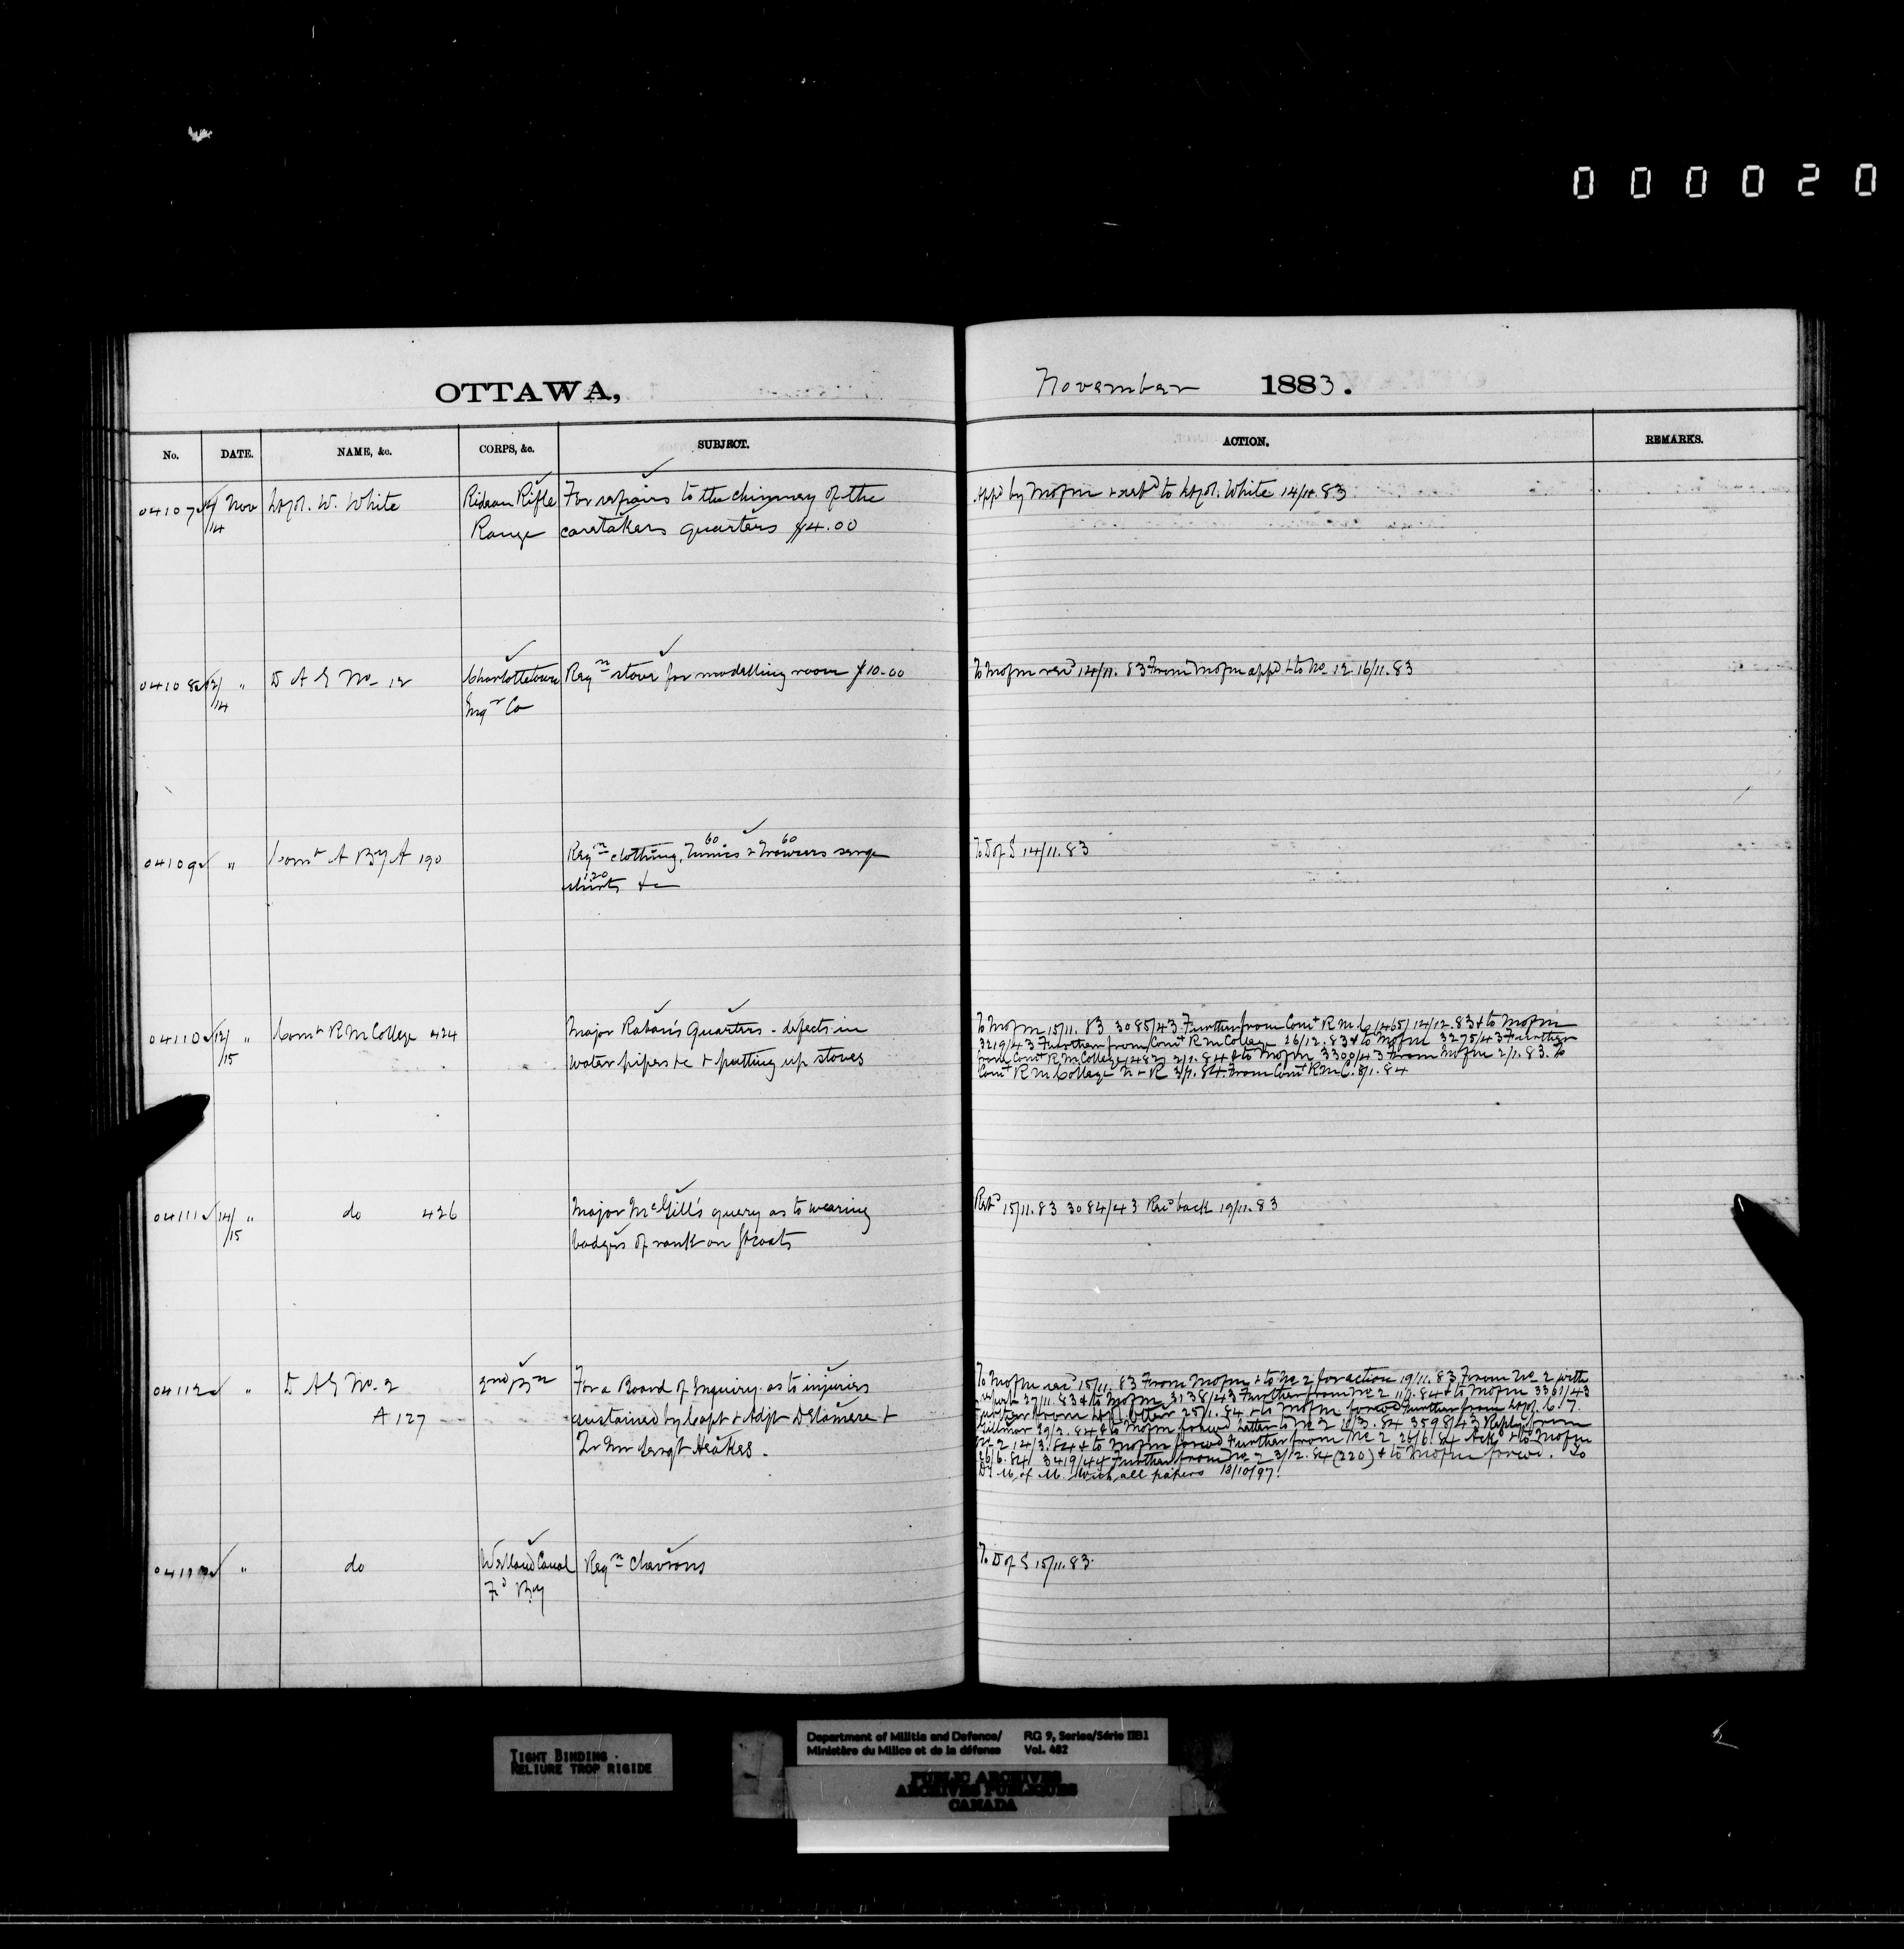 000020
OTTAWA,
November 1883.
No. DATE. NAME, &c. CORPS, &c. SUBJECT. ACTION. REMARKS.
04107 14/14 Nov Lt Col. W. White Rideau Rifle For repairs to the chimney of the App'd by M of M & ret'd to Lt Col. White 14/11.83
Range caretakers quarters $4.00
04108 12/14 " D A G No. 12 Charlottetown Reqn stove for modelling room $10.00 To M of M rec'd 14/11.83 From M of M app'd & to No. 12 16/11.83
Engr Co
04109 " Comt A By A 190 Reqn clothing, 60 Tunics & 60 Trowsers serge To D of S 14/11.83
120 shirts &c
04110 12/15 Comt R M College 424 Major Raban's Quarters - defects in
water pipes &c & putting up stoves
To M of M 15/11.83 3085/43 Further from Comt R.M.C. 14/12.83 & to M of M
3219/43 Further from Comt R M College 26/12.83 & to M of M 3275/43 Further
from Comt R M College 2/1.84 & to M of M 3300/43 From M of M 2/1.83. To
Comt R M College N & R 3/1.84 From Comt R M C. 8/1.84
04111 14/15 " do 426 Major McGill's query as to wearing Ret'd 15/11.83 3084/43 Rec'd back 19/11.83
badges of rank on
04112 " D A G No. 2 2nd Bn For a Board of Enquiry as to injuries
A 127 sustained by Capt & Adjt Delamere &
Qr Mr Sergt Heakes.
To M of M rec'd 15/11.83 From M of M & to No 2 for action 19/11.83 From No 2 with
report 27/11.83 & to M of M 3138/43 Further from No 2 11/1.84 & to M of M 3361/43
Further from Lt Col Otter 25/1.84 & to M of M forw'd Further from Lt Col.
Gillmor 29/2.84 & to M of M forw'd Letter to No 2 3598/43 Reply from
No 2 14/3.84 & to M of M forw'd Further from No 2 26/6.84 Ack'd & to M of M
26/6.84 3419/44 Further from No 2 3/12.84 (220) & to M of M forw'd. To
D. M. of M. with all papers 13/10/97.
" do Welland Canal Reqn Chevrons To D of S 15/11.83.
Fd By
TIGHT BINDING
RELIURE TROP RIGIDE
Department of Militia and Defence/ RG 9, Series/Série IIB1
Ministère du Milice et de la défense Vol. 482
PUBLIC ARCHIVES
ARCHIVES PUBLIQUES
CANADA